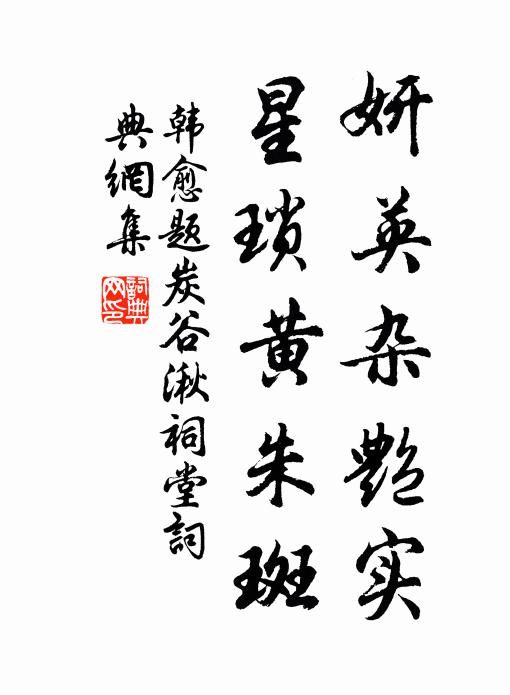 妍英杂艶实
星琐黄朱斑
韩愈题炭谷湫祠堂詞
典網集
詞典网印